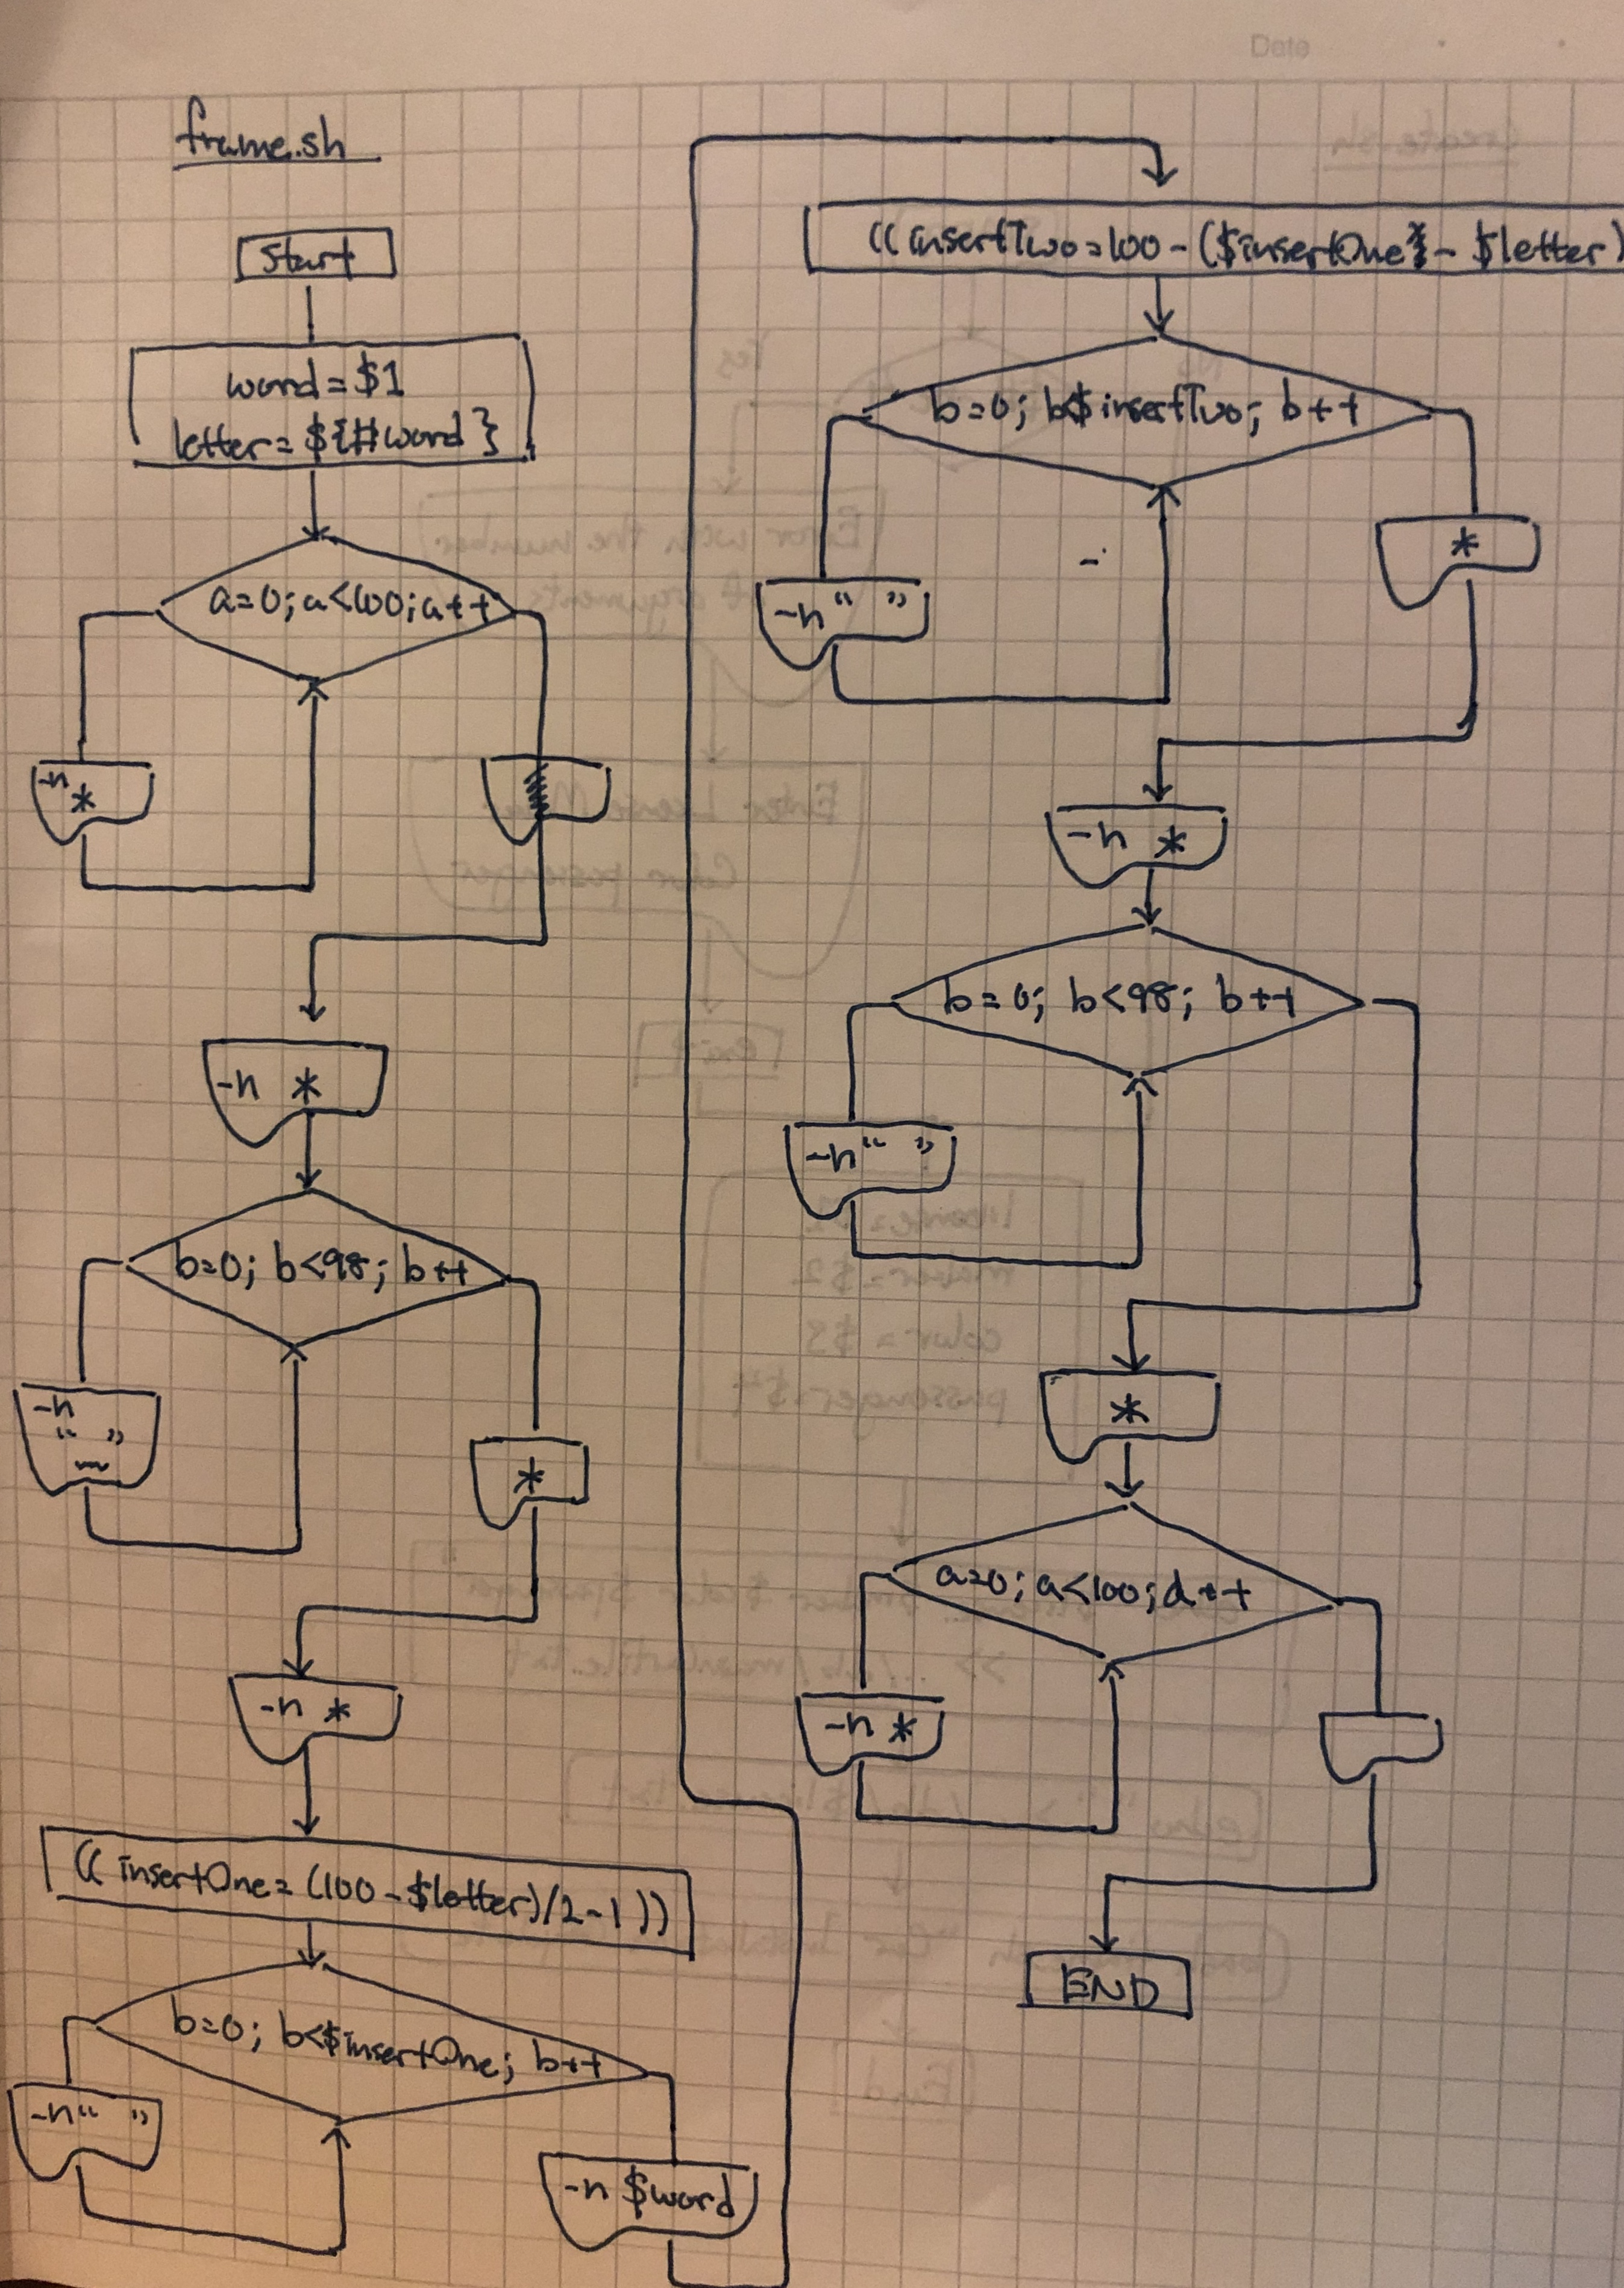 Date
frame.sh
start
word=$1
letter=${#word}
a=0; a<100; a++
-n
*
-n *
b=0; b<98; b++
-n
“ ”
*
-n *
(( insertOne= (100-$letter)/2-1 ))
b=0; b<$insertOne; b++
-n“ ”
-n $word
(( insertTwo=100-($insertOne - $letter)
b=0; b<$insertTwo; b++
-n“ ”
*
-n *
b=0; b<98; b++
-n“ ”
*
a=0; a<100; a++
-n *
END